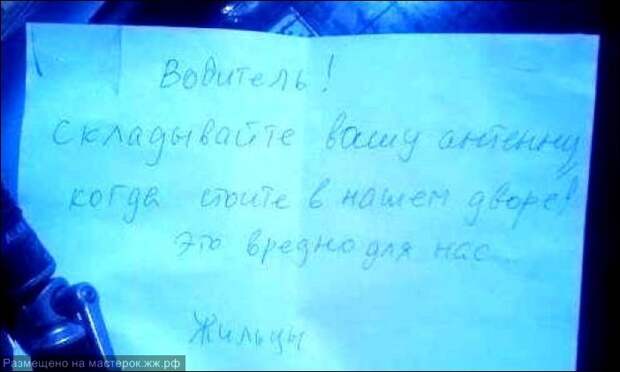 Водитель!
Складывайте вашу антенну
когда стоите в нашем дворе!
Это вредно для нас...
Жильцы
Размещено на мастерок.жж.рф